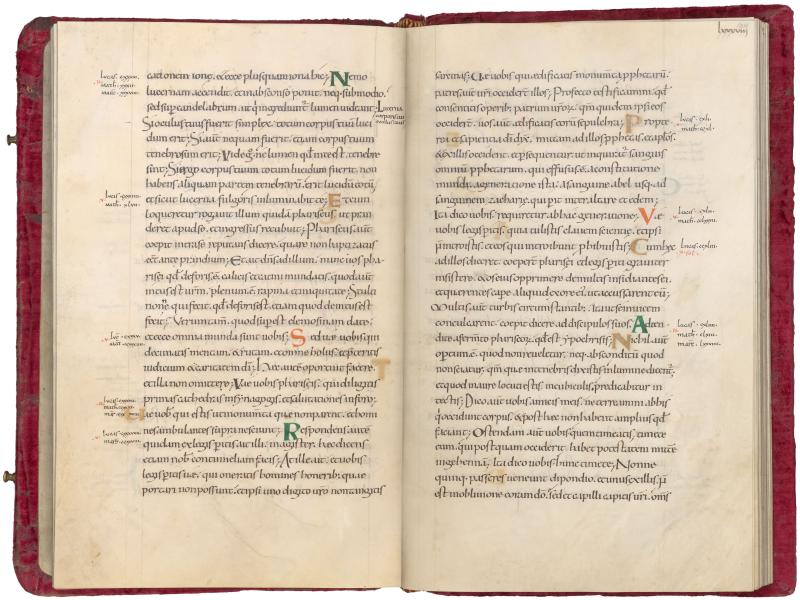 cationem ionę. et ecce plusquam iona hic; Nemo
lucernam accendit. et in absconso ponit. neq; sub modio.
sed supra candelabrum. ut qui ingrediunt lumen videant;
Si oculus tuus fuerit simplex. totum corpus tuum luci
dum erit; Si aut nequam fuerit. etiam corpus tuum
tenebrosum erit; Vide g ne lumen qd in te est. tenebre
sint; Si ergo corpus tuum totum lucidum fuerit. non
habens aliquam partem tenebrarū. erit lucidū totū
et sicut lucerna fulgoris inluminabit te; Et cum
loqueretur rogavit illum quidā phariseus. ut pran
deret apud se. et ingressus recubuit; Phariseus aut
coepit intra se reputans dicere. quare non baptizatus
eēt ante prandium; Et ait dns ad illum. nunc vos pha
risei qd deforis ē calicis et catini mundatis. quod aut
intus est urm. plenum ē rapina et iniquitate; Stulti
nonne qui fecit qd deforis est. etiam quod deintus est
fecit; Verum tam quod superest elemosinam date.
et ecce omnia munda sunt vobis; Sed ve vobis qui
decimatis mentam. et rutam. et omne holus. et preteritis
iudicium et caritatem di; Hec aut oportuit facere.
et illa non omittere; Ve vobis pharisei. qui diligitis
primas cathedras in synagogis. et salutationes in foro;
ve vob qui estis ut monumenta que non parent. et homi
nes ambulantes supra nesciunt; Respondens aute
quidam ex legisperitis ait illi. magister. hec dicens
etiam nob contumeliam facis; At ille ait. et vobis
legisperitis ve. qui oneratis homines honerib que
portari non possunt. et ipsi uno digito uro non tangitis
Lucerna
corporis tui
oculus tuus
lxxxviiij
sarcinas; Ve vobis qui ędificatis monumta pphetarū.
patres aut uri occidert illos; Profecto testificamini qd
consentitis operib; patrum urorū. qm quidem ipsi eos
occidert. vos aut ędificatis eorū sepulchra; Propte
rea et sapientia di dx. mittam ad illos pphetas. et aplos.
et ex illis occident. et persequentur. ut inquirat sanguis
omnium pphetarum. qui effusus ē a constitutione
mundi. a generatione ista. a sanguine abel usq; ad
sanguinem zacharie. qui perit inter altare et edem;
Ita dico vobis requiretur ab hac generatione; Ve
vobis legisperitis. quia tulistis clavem scientie. et ipsi
n introistis. et eos qui introibant phibuistis; Cum hec
ad illos diceret. coepert pharisei et legis periti graviter
insistere. et os eius opprimere de multis insidiantes ei
et querentes cape aliquid ex ore ei. ut accusarent eū;
Multis aut turbis circumstantib; ita ut se invicem
conculcarent. coepit dicere ad discipulos suos. Adten
dite a fermto phariseorū. qd est ypochrisis; Nihil aut
optum ē. quod non reveletur. neq; absconditū quod
non sciatur. qm que in tenebris dixistis in lumine dicent.
et quod in aure locuti estis. in cubiculis. predicabitur in
tectis; Dico aut vobis amicis meis. ne terreamini ab his
qi occidunt corpus. et post hec non habent amplius qd
faciant; Ostendam aut vobis quem timeatis. timete
eum. qui postquam occiderit. habet potestatem mitte
in gehennā; Ita dico vobis hunc timete; Nonne
quinq; passeres veneunt dipondio. et unus ex illis n
est in oblivione coram do. sed et capilli capitis uri. oms